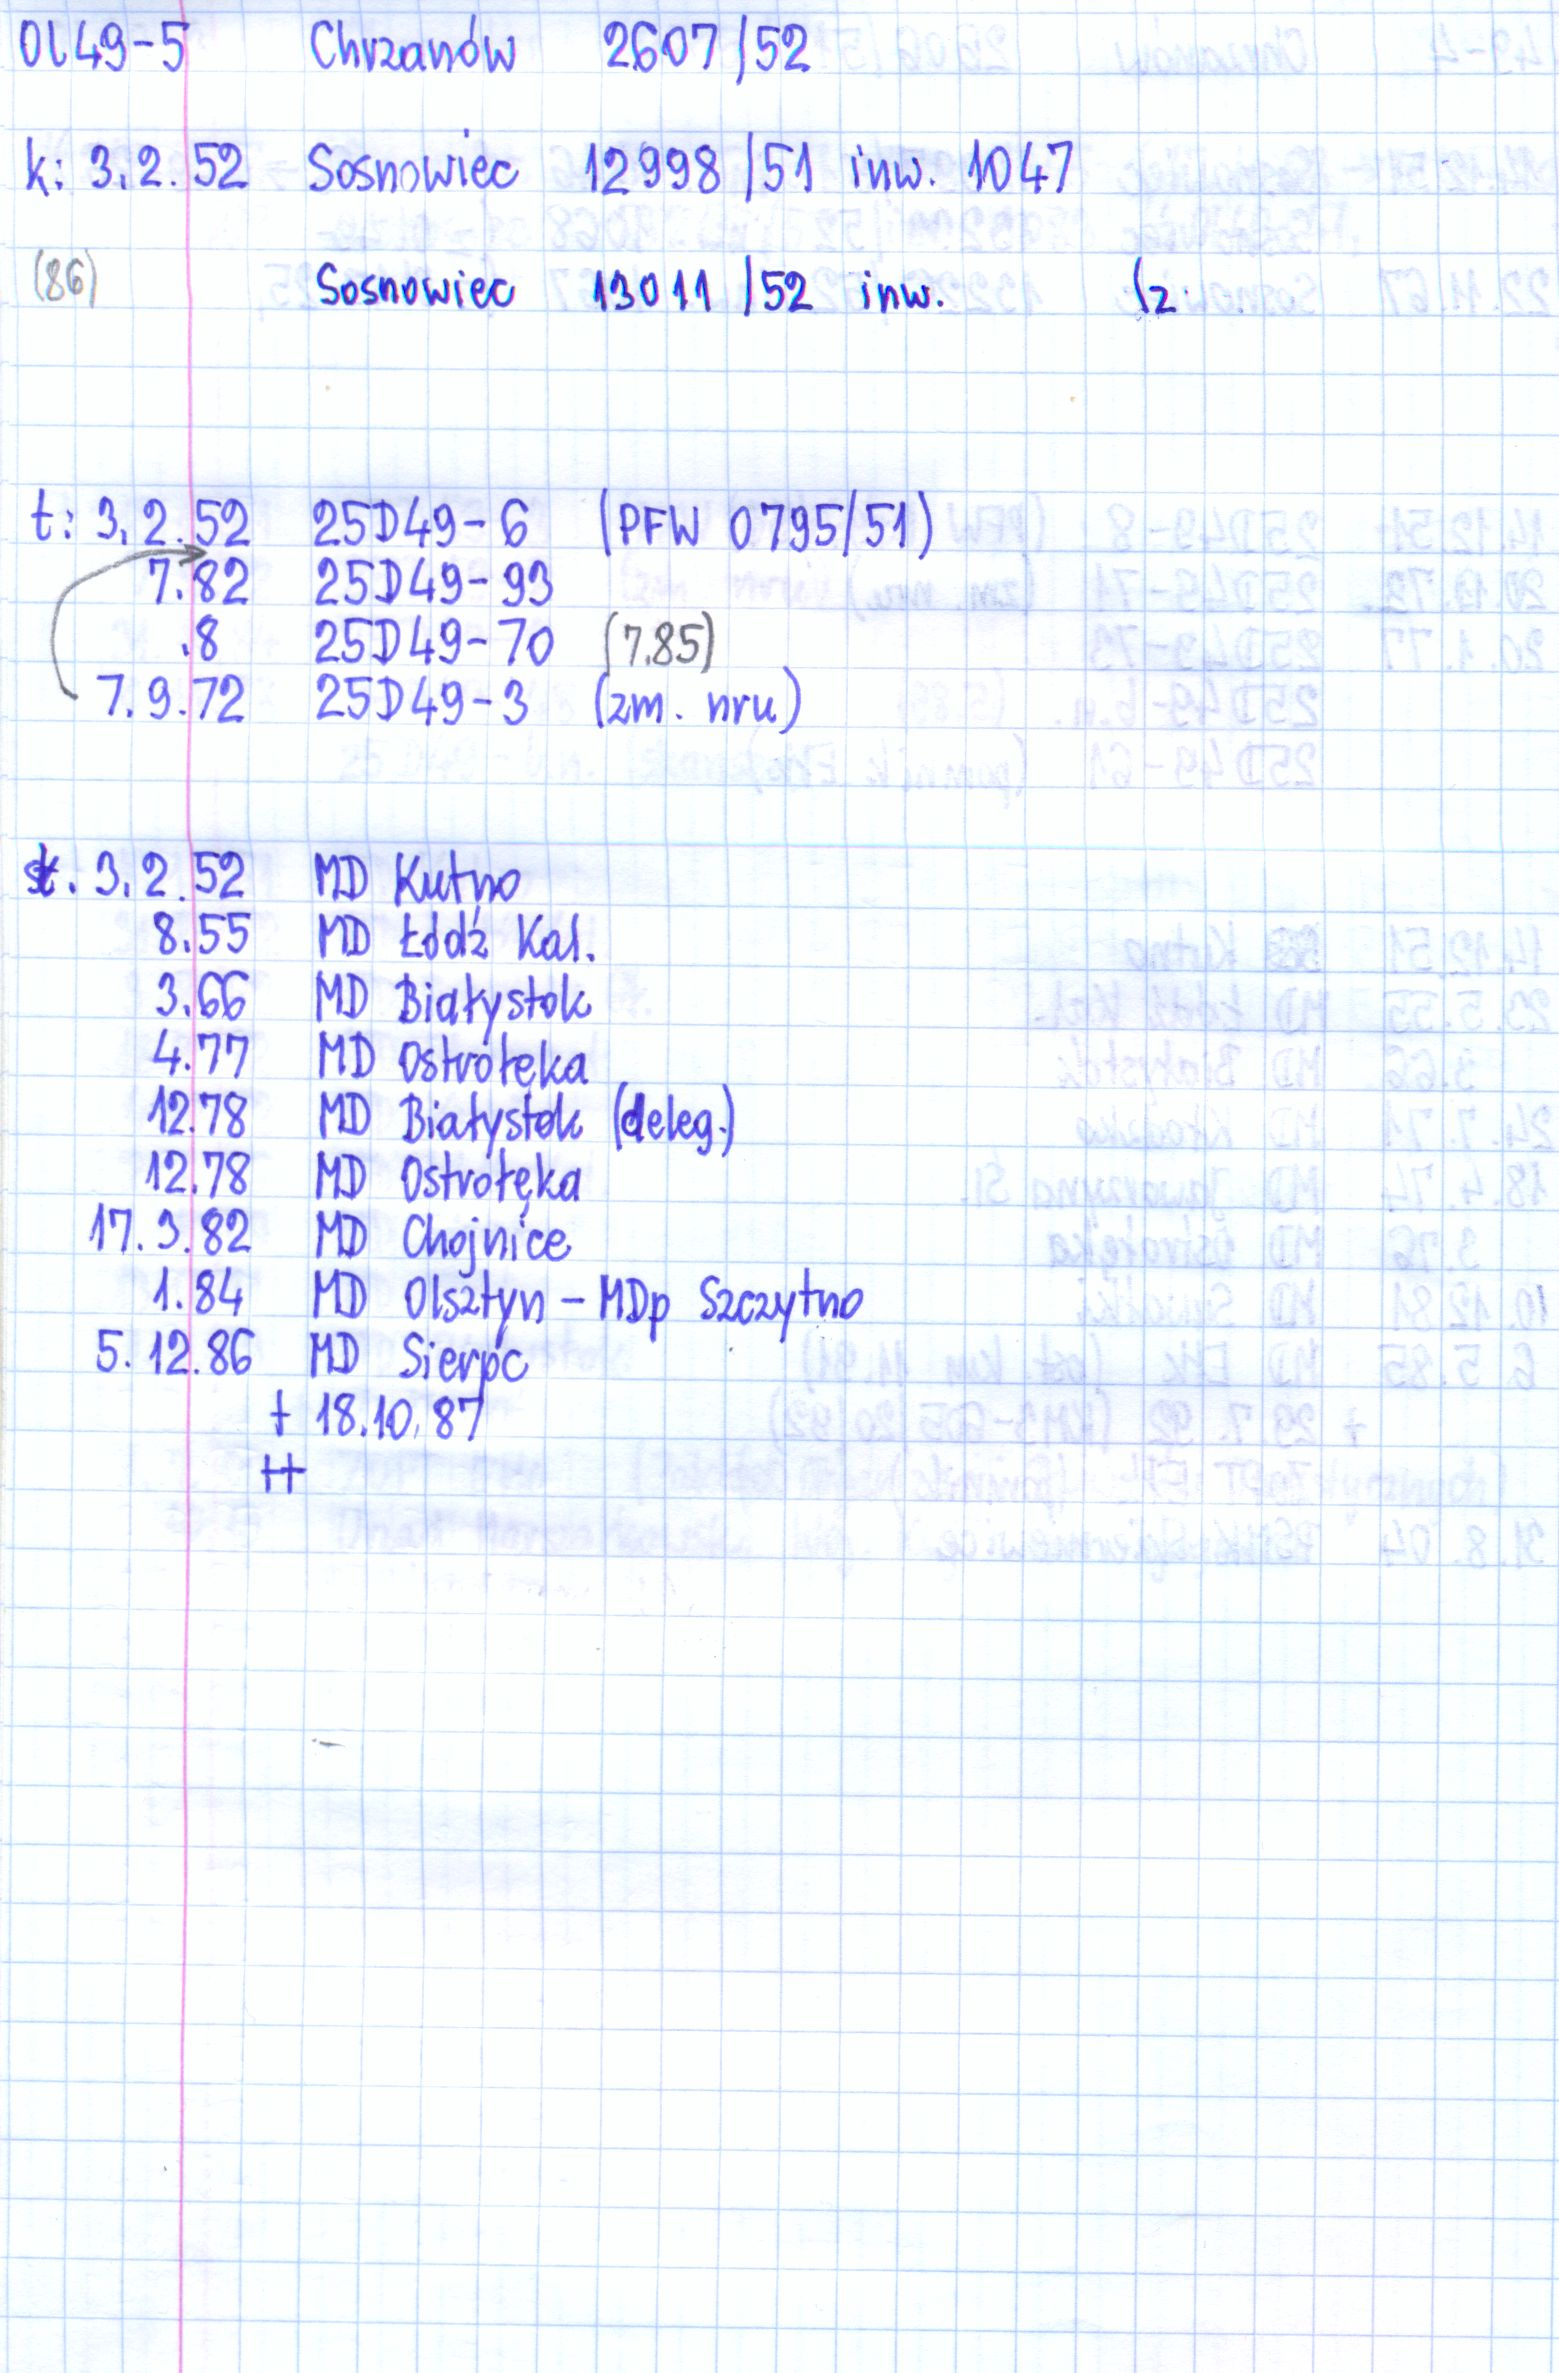 Ol49-5 Chrzanów 2607/52
k: 3.2.52 Sosnowiec 12998/51 inw. 1047
(86) Sosnowiec 13011/52 inw. (z
t: 3.2.52 25D49-6 (PFW 0795/51)
7.82 25D49-93
.8 25D49-70 (7.85)
7.9.72 25D49-3 (zm. nru)
st. 3.2.52 MD Kutno
8.55 MD Łódź Kal.
3.66 MD Białystok
4.77 MD Ostrołęka
12.78 MD Białystok (deleg.)
12.78 MD Ostrołęka
17.3.82 MD Chojnice
1.84 MD Olsztyn - MDp Szczytno
5.12.86 MD Sierpc
+ 18.10.87
++